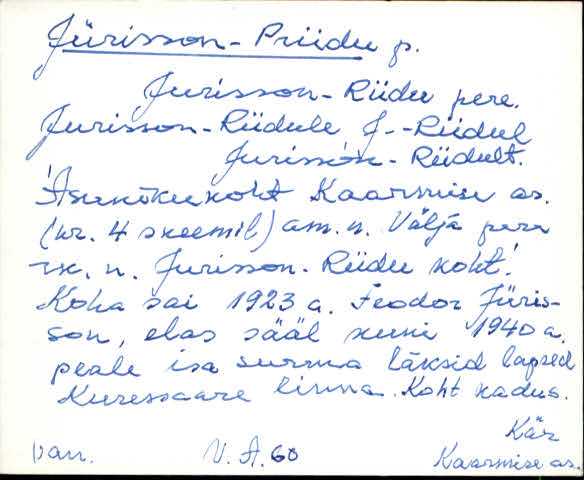 Jürisson-Priidu p.
Jurisson-Riidu pere.
Jurisson-Riidule J.-Riidul
Jurisson-Riidult.
'Asunikukoht Kaarmise as.
(nr. 4 skeemil) am. n. Välja pere
rk. n. Jurisson-Riidu koht'.
Koha sai 1923 a. Feodor Jüris-
son, elas sääl kuni 1940 a.
peale isa surma läksid lapsed
Kuressaare linna. Koht kadus.
Kär
van. V. A. 60 Kaarmise as.